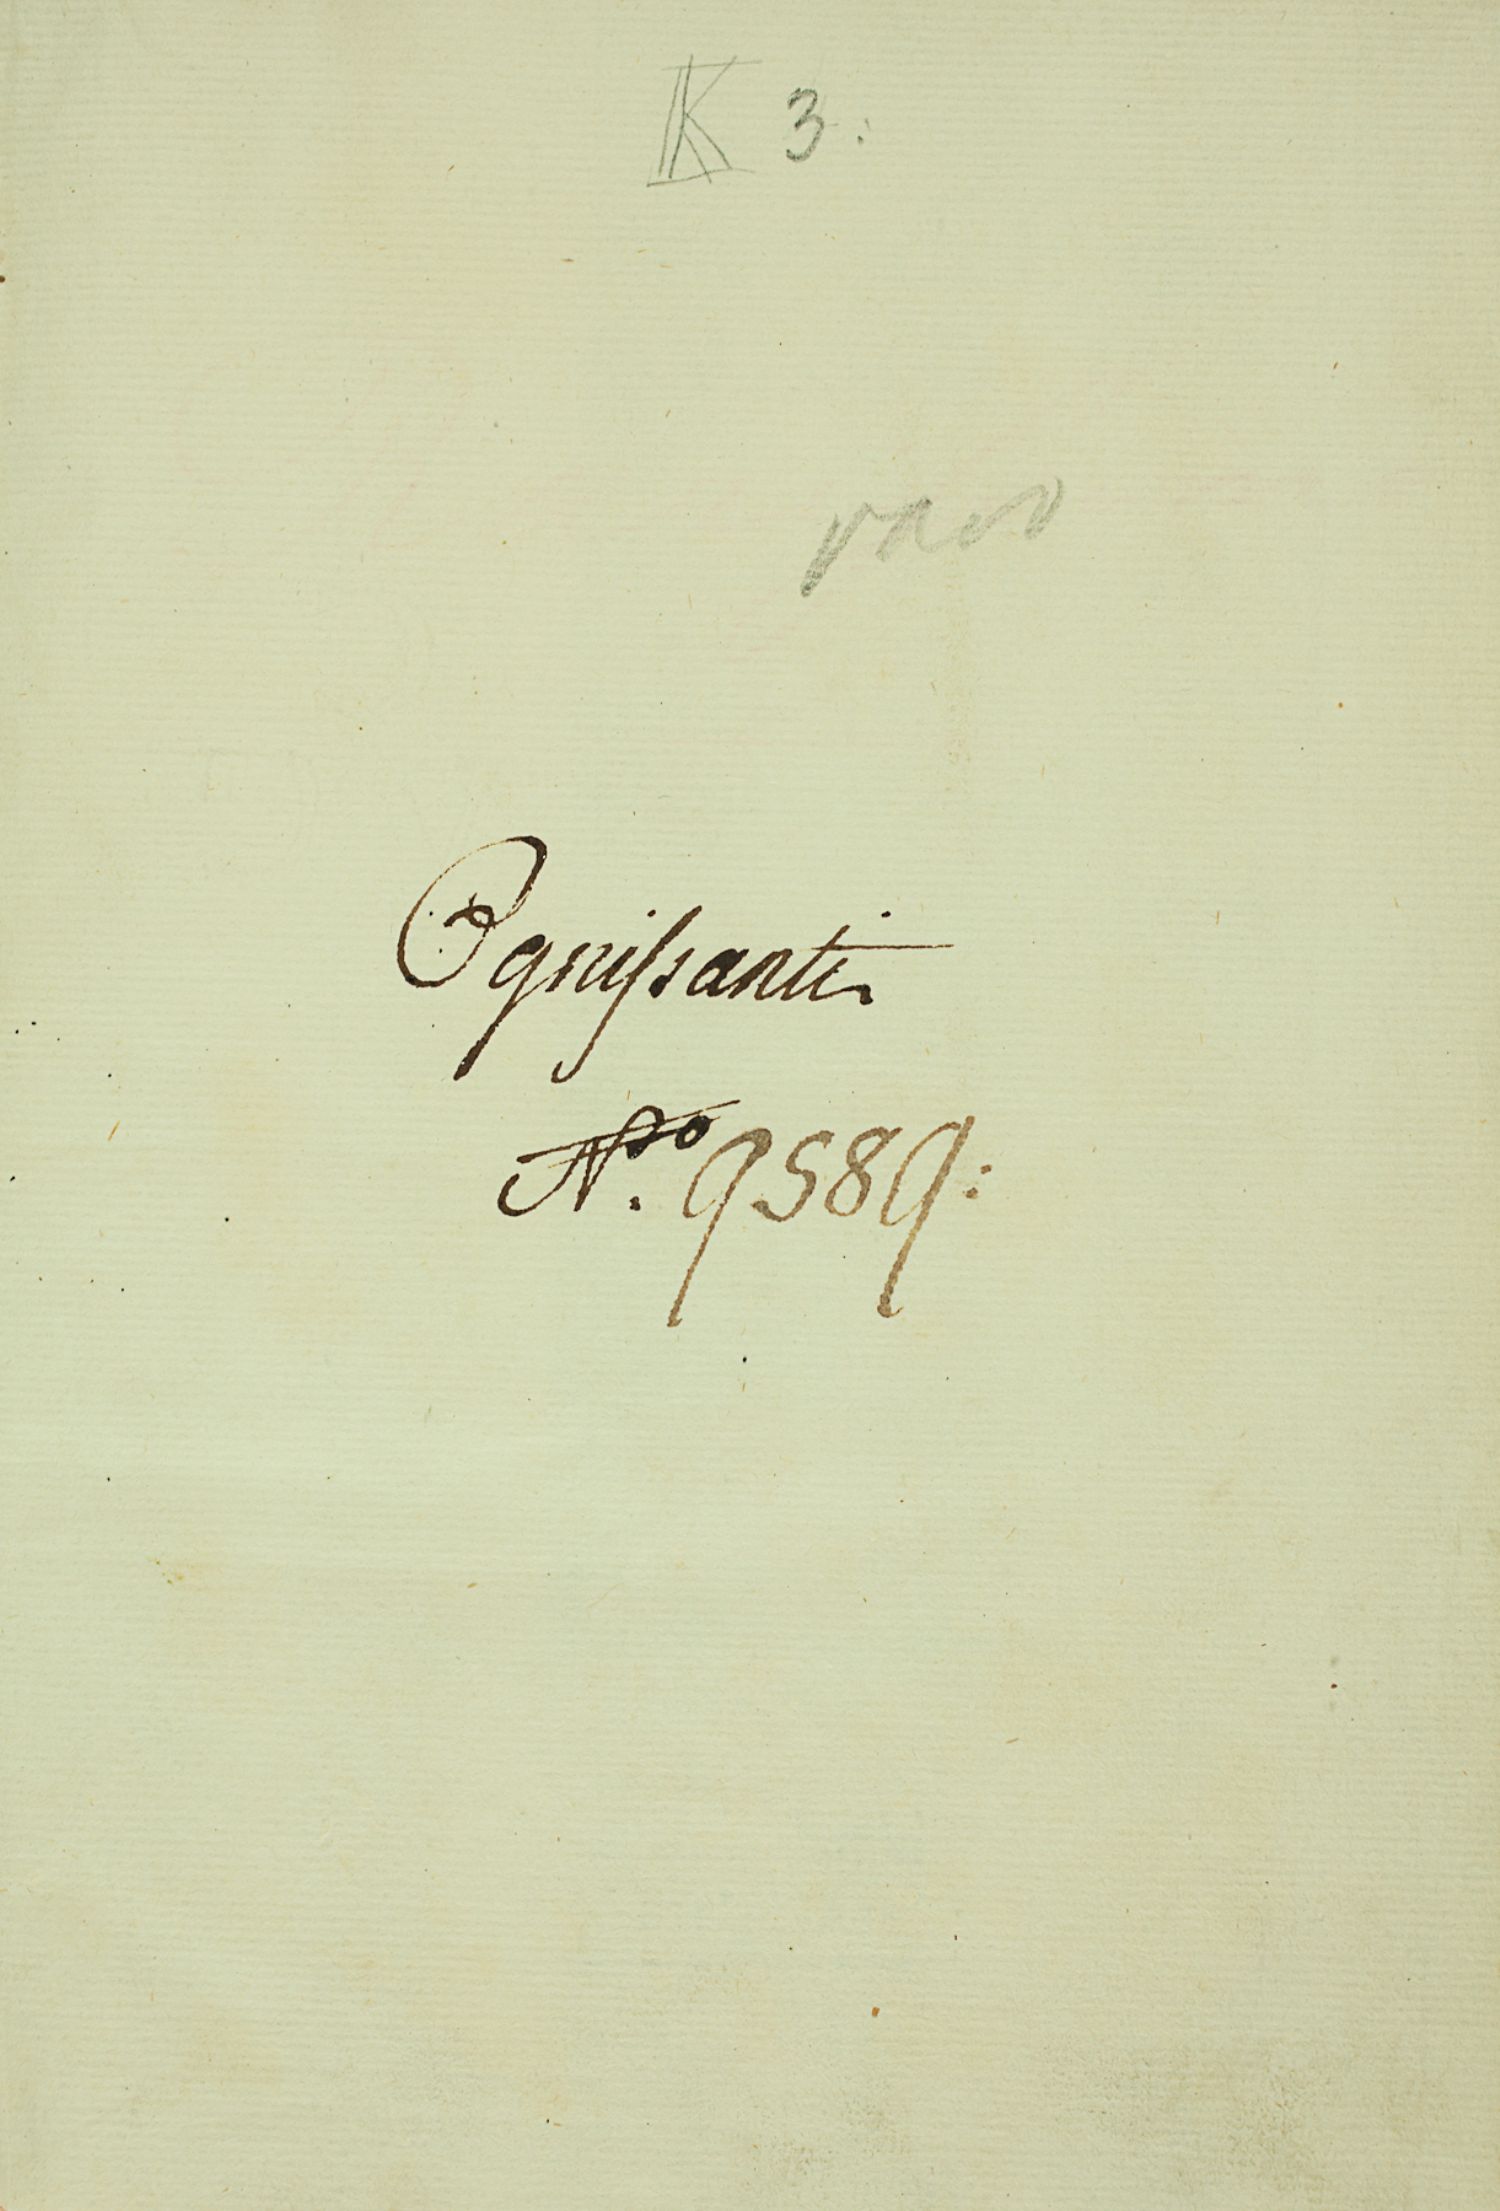 K 3:
raro
Ognissanti
No. 9589: